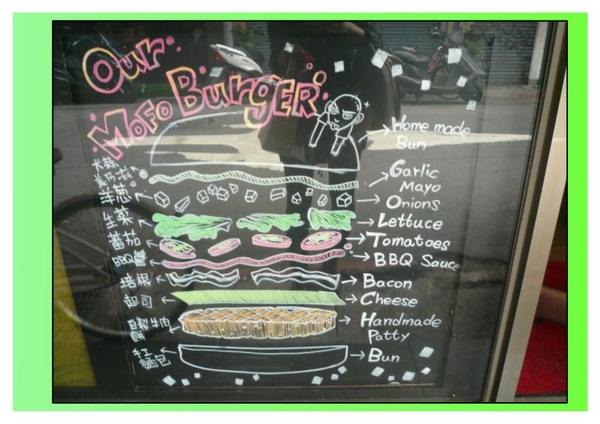 Our
MoFo BurgER
Home made
Bun
Garlic
Mayo
Onions
Lettuce
Tomatoes
BBQ Sauce
Bacon
Cheese
Handmade
Patty
Bun
洋蔥
生菜
蕃茄
BBQ醬
培根
起司
自製牛肉
手工
麵包